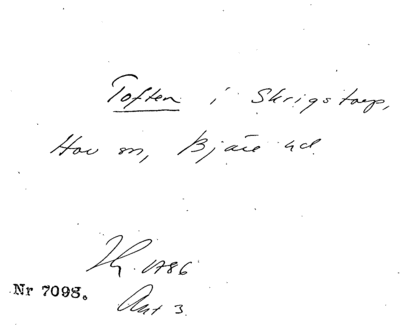 Toften i Skrigstorp,
Hov sn, Bjäre hd.
1786
Nr 7098.
Ant 3.